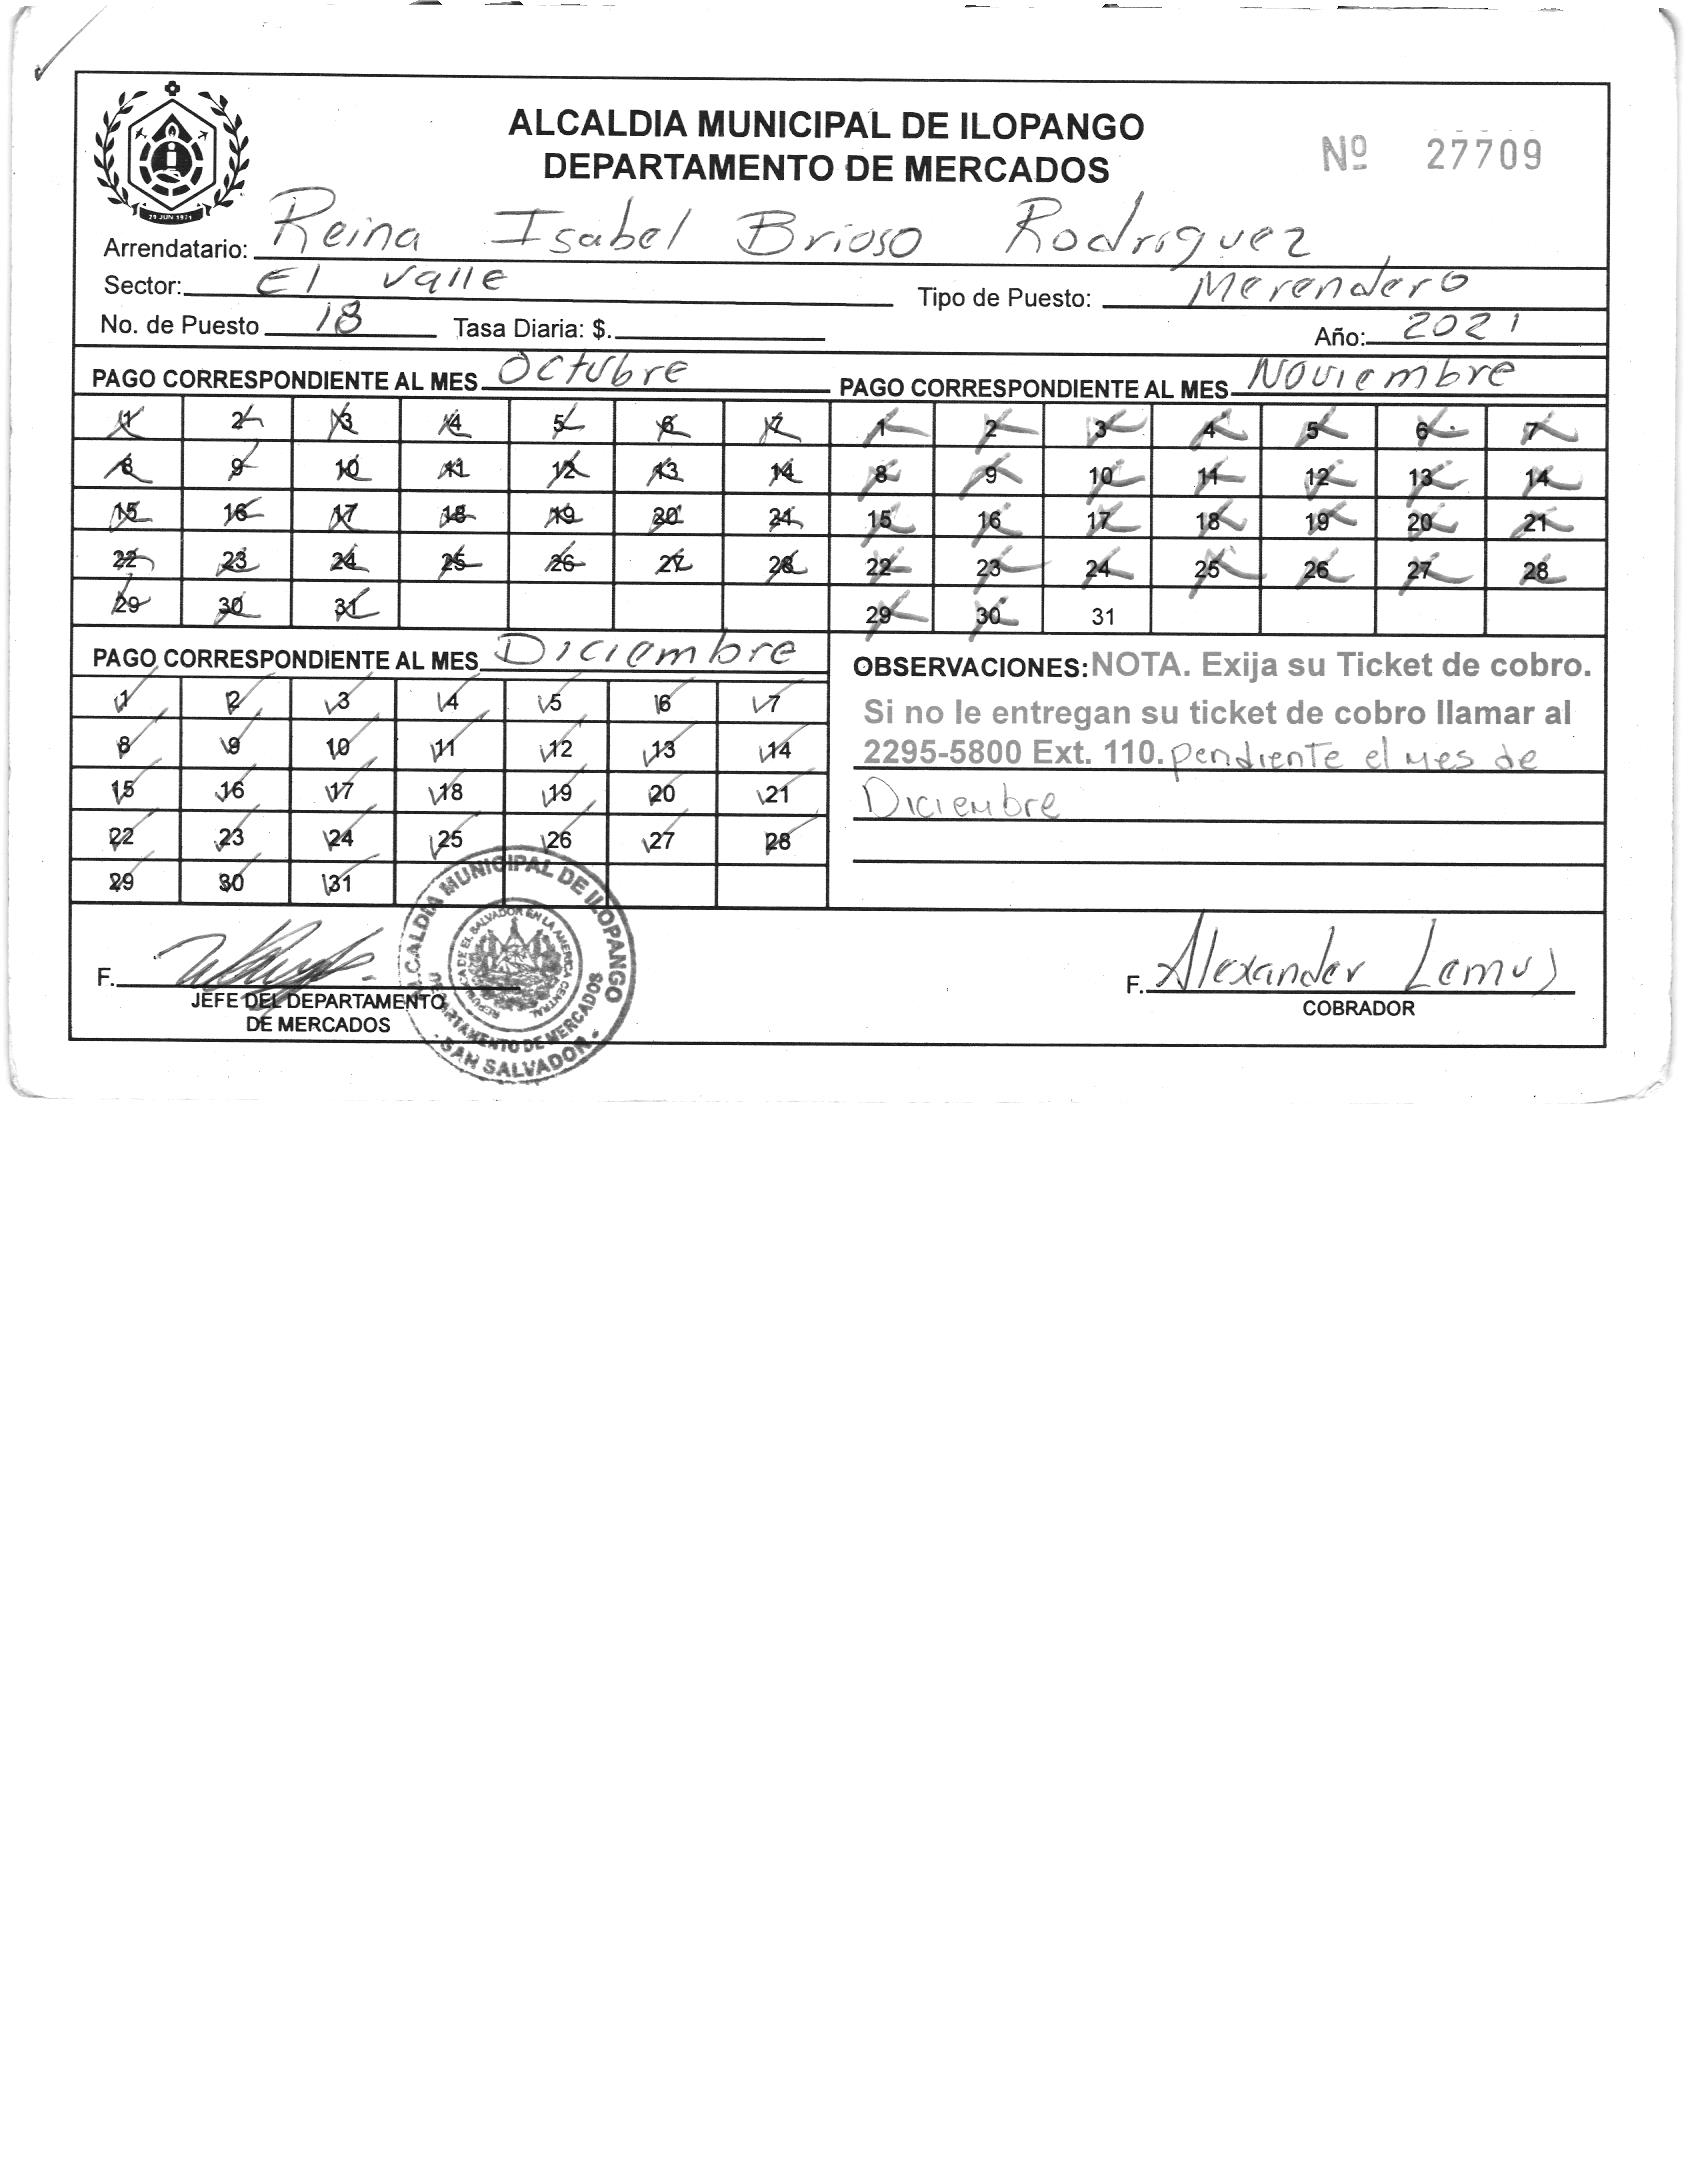 ALCALDIA MUNICIPAL DE ILOPANGO
DEPARTAMENTO DE MERCADOS
Nº 27709
29 JUN 1971
Arrendatario: Reina Isabel Brioso Rodriguez
Sector: El valle Tipo de Puesto: Merendero
No. de Puesto 18 Tasa Diaria: $. Año: 2021
PAGO CORRESPONDIENTE AL MES Octubre
1 2 3 4 5 6 7
8 9 10 11 12 13 14
15 16 17 18 19 20 21
22 23 24 25 26 27 28
29 30 31
PAGO CORRESPONDIENTE AL MES Noviembre
1 2 3 4 5 6 7
8 9 10 11 12 13 14
15 16 17 18 19 20 21
22 23 24 25 26 27 28
29 30 31
PAGO CORRESPONDIENTE AL MES Diciembre
1 2 3 4 5 6 7
8 9 10 11 12 13 14
15 16 17 18 19 20 21
22 23 24 25 26 27 28
29 30 31
OBSERVACIONES: NOTA. Exija su Ticket de cobro.
Si no le entregan su ticket de cobro llamar al
2295-5800 Ext. 110. pendiente el mes de
Diciembre
F.
JEFE DEL DEPARTAMENTO
DE MERCADOS
ALCALDIA MUNICIPAL DE ILOPANGO
DEPARTAMENTO DE MERCADOS
SAN SALVADOR
REPUBLICA DE EL SALVADOR EN LA AMERICA CENTRAL
F. Alexander Lemus
COBRADOR